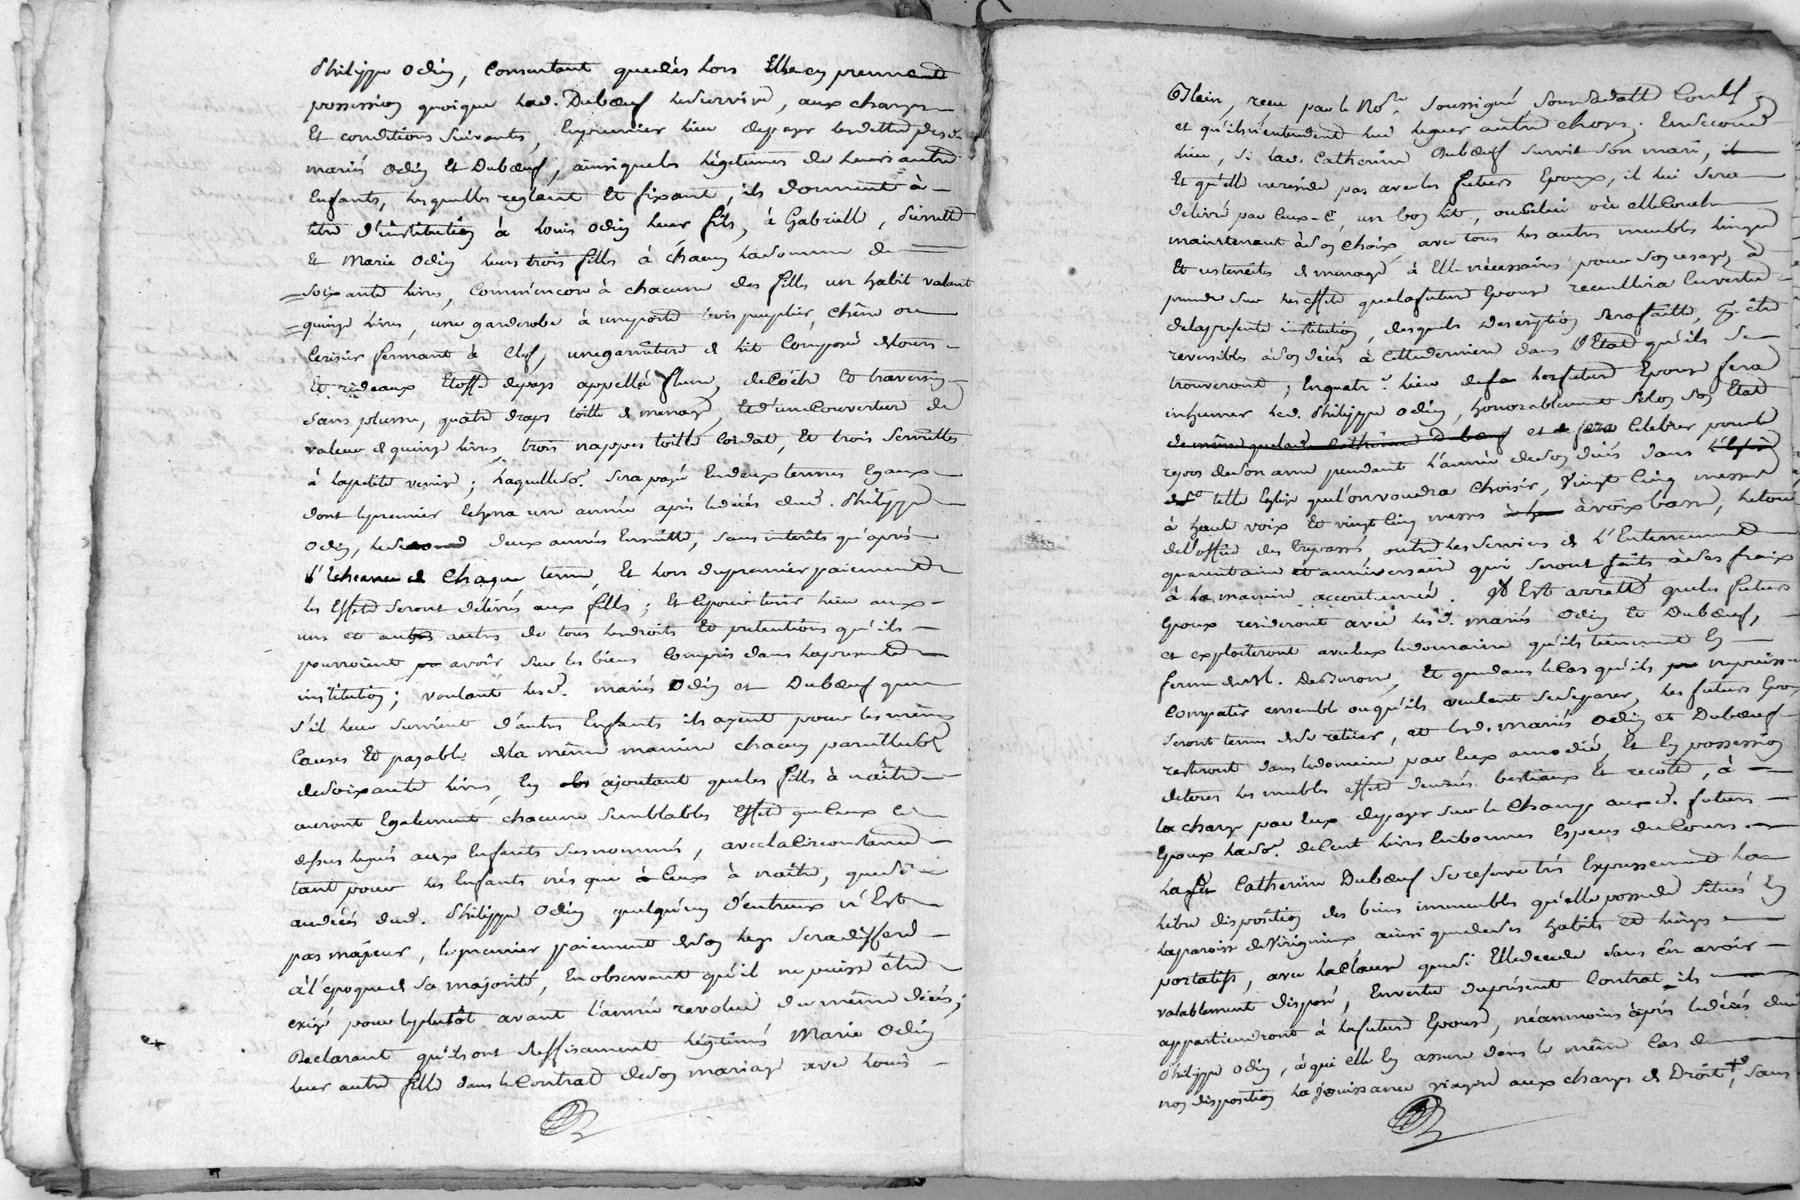 Philippe Odin, consentant que dès lors Elle en prennent
possession quoique lad. Dubœuf lui survive, aux charges
Et conditions suivantes, En premier lieu de payer les dettes desd.
mariés Odin Et Dubœuf, ainsi que les légitimes de leurs autres
Enfants, lesquelles réglant Et fixant, ils donnent à
titre d'institution à Louis Odin leur fils, à Gabrielle, Pierrette
Et Marie Odin leurs trois filles à chacun la somme de
soixante livres, comm'encore à chacune des filles un habit valant
quinze livres, une garderobe à une porte bois peuplier, chêne ou
Cerisier fermant à clef, une garniture de lit Composé de tours
Et rideaux Etoffe de pays appellée flume, de Coëtre Et traversin
sans plume, quatre draps toille de ménage, Et d'une Couverture de
valeur de quinze livres, trois nappes toille cordat, Et trois serviettes
à la petite venise; laquelle so.e sera payé En deux termes Egaux
dont le premier Echerra une année après le décès dud. Philippe
Odin, le second deux années Ensuitte, sans interêts qu'après
l'échéance de Chaque terme, Et lors du premier paiement
les Effets seront délivrés aux filles; Et le pour tenir lieu aux
uns et autres de tous les droits Et prétentions qu'ils
pourroient avoir sur les biens Compris dans la présente
institution; voulant lesd. mariés Odin et Dubœuf que
s'il leur survient d'autres Enfants ils ayent pour les mêmes
Causes Et payable de la même manière chacun pareille so.e
de soixante livres, En ajoutant que les filles à naître
auront Egalement chacune semblables Effets que ceux ci
dessus légués aux Enfants surnommés, avec la circonstance
tant pour les Enfants nés que à ceux à naître, que si
au décès dud. Philippe Odin quelqu'un d'entreux n'Est
pas majeur, le premier paiement de son legs sera différé
à l'époque de sa majorité, En observant qu'il ne puisse être
exigé pour le plutôt avant l'année révolue du même décès;
Déclarant qu'ils ont suffisament légitimés Marie Odin
leur autre fille dans le Contrat de son mariage avec Louis
reçu par le No.re soussigné, sous sa datte
et qu'ils n'entendent lui léguer autre chose; En second
lieu, si lad. Catherine Dubœuf survit son mari,
Et qu'elle ne reside pas avec les futurs Epoux, il lui sera
délivré par Eux-C un bon lit, ou celui où elle Couche
maintenant à son choix, avec tous les autres meubles linges
Et ustenciles de menage à Elle nécessaires pour son usage, à
prendre sur les effets que la future Epouse recueillira En vertu
de la presente institution, desquels Description sera faitte, p.r être
reversibles à son décès à cette dernière dans l'Etat qu'ils se
trouveront; En quatr.e lieu les futurs Epoux fera
inhumer led. Philippe Odin, honorablement selon son Etat
de même que lad. Catherine Dubœuf et fera Celebrer pour le
repos de son ame pendant l'année de son décès dans l'Eglise
telle Eglise que l'on voudra choisir, Vingt Cinq messes
à haute voix Et vingt Cinq messes à voix basse,
de l'office des trépassés, outre les Services de l'Enterrement
quarantaine et anniversaire qui seront faits à ses fraix
à la manière accoutumée. Il Est arretté que les futurs
Epoux resideront avec lesd. mariés Odin Et Dubœuf,
et exploiteront avec Eux le domaine qu'ils tiennent En
ferme de M. Et que dans le Cas qu'ils ne puissent
Compatir ensemble ou qu'ils veulent se separer, les futurs Epoux
seront tenus de se retirer, et lesd. mariés Odin et Dubœuf
resteront dans le domaine par Eux amodié, Et En possession
de tous les meubles effets denrées bestiaux Et recolte, à
la charge par Eux de payer sur le Champ auxd. futurs
Epoux la so.e de Cent livres En bonnes Especes du Cours.
lad. Catherine Dubœuf se reserve très Expressement la
libre disposition des biens immeubles qu'elle possede situés En
la paroisse de Vérignieux ainsi que de ses habits et linges
portatifs, avec la Clause que si Elle decede sans En avoir
valablement disposé, En vertu du présent Contrat ils
appartiendront à la future Epouse, néanmoins après le décès dud.
Philippe Odin, à qui elle En assure dans le même Cas de
non disposition la jouissance viagère aux charges de Droit, sans